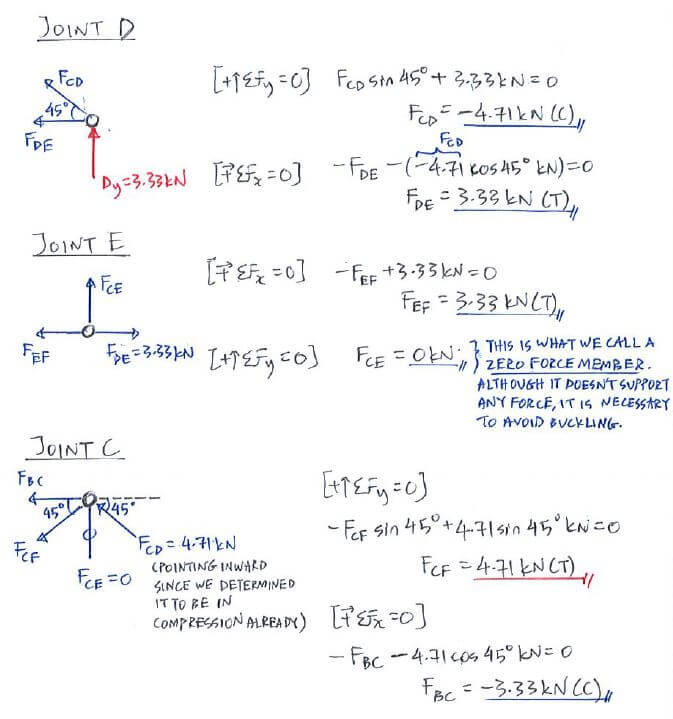 JOINT D
F_CD
45°
F_DE
Dy=3.33kN
[+↑ΣFy=0] F_CD sin 45° + 3.33kN=0
F_CD = -4.71 kN (C)
F_CD
[→+ ΣFx=0] -F_DE -(-4.71 cos 45° kN)=0
F_DE = 3.33 kN (T)
JOINT E
F_CE
F_EF
F_DE=3.33kN
[→+ ΣFx=0] -F_EF +3.33kN=0
F_EF = 3.33 kN(T)
[+↑ΣFy=0] F_CE = 0kN. } THIS IS WHAT WE CALL A
ZERO FORCE MEMBER.
ALTHOUGH IT DOESN'T SUPPORT
ANY FORCE, IT IS NECESSARY
TO AVOID BUCKLING.
JOINT C
F_BC
45°
45°
F_CF
F_CE=0
F_CD = 4.71 kN
(POINTING INWARD
SINCE WE DETERMINED
IT TO BE IN
COMPRESSION ALREADY)
[+↑ΣFy=0]
-F_CF sin 45°+4.71 sin 45° kN=0
F_CF = 4.71 kN(T)
[→+ ΣFx=0]
-F_BC -4.71 cos 45° kN=0
F_BC = -3.33kN(C)